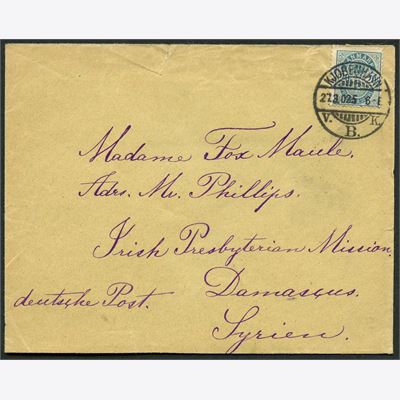 KJØBENHAVN
27.3.02 5 6-
V. K.
B.
Madame Fox Maule.
Adrs. Mr. Phillips.
Irish Presbyterian Mission.
deutsche Post.
Damascus.
Syrien.